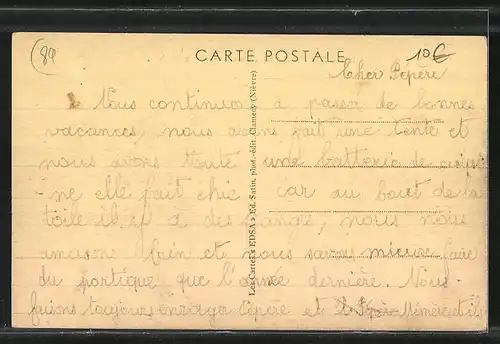 (89
CARTE POSTALE
10€
Cher Pépère
Nous continuons à passer de bonnes
vacances, nous avons fait une tente et
nous avons toute une batterie de cuisi
-ne elle fait chic car au bout de la
toile il y a des nous nous
amusons bien et nous savons mieux faire
du portique que l'année dernière. Nous
faisons toujours enrager Pépère et Mémère et ils
Les Cartes EDSA - Ed. Satin, phot.-édit. Clamecy (Nièvre)